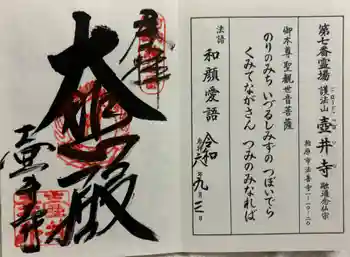 奉拝
大悲殿
壺井寺
第七番霊場 護法山 壺井寺 融通念仏宗
柏原市法善寺一-一九-二六
御本尊聖観世音菩薩
のりのみち いづるしみずの つぼいでら
くみてながさん つみのみなれば
法語 和顔愛語 令和六年九月三日